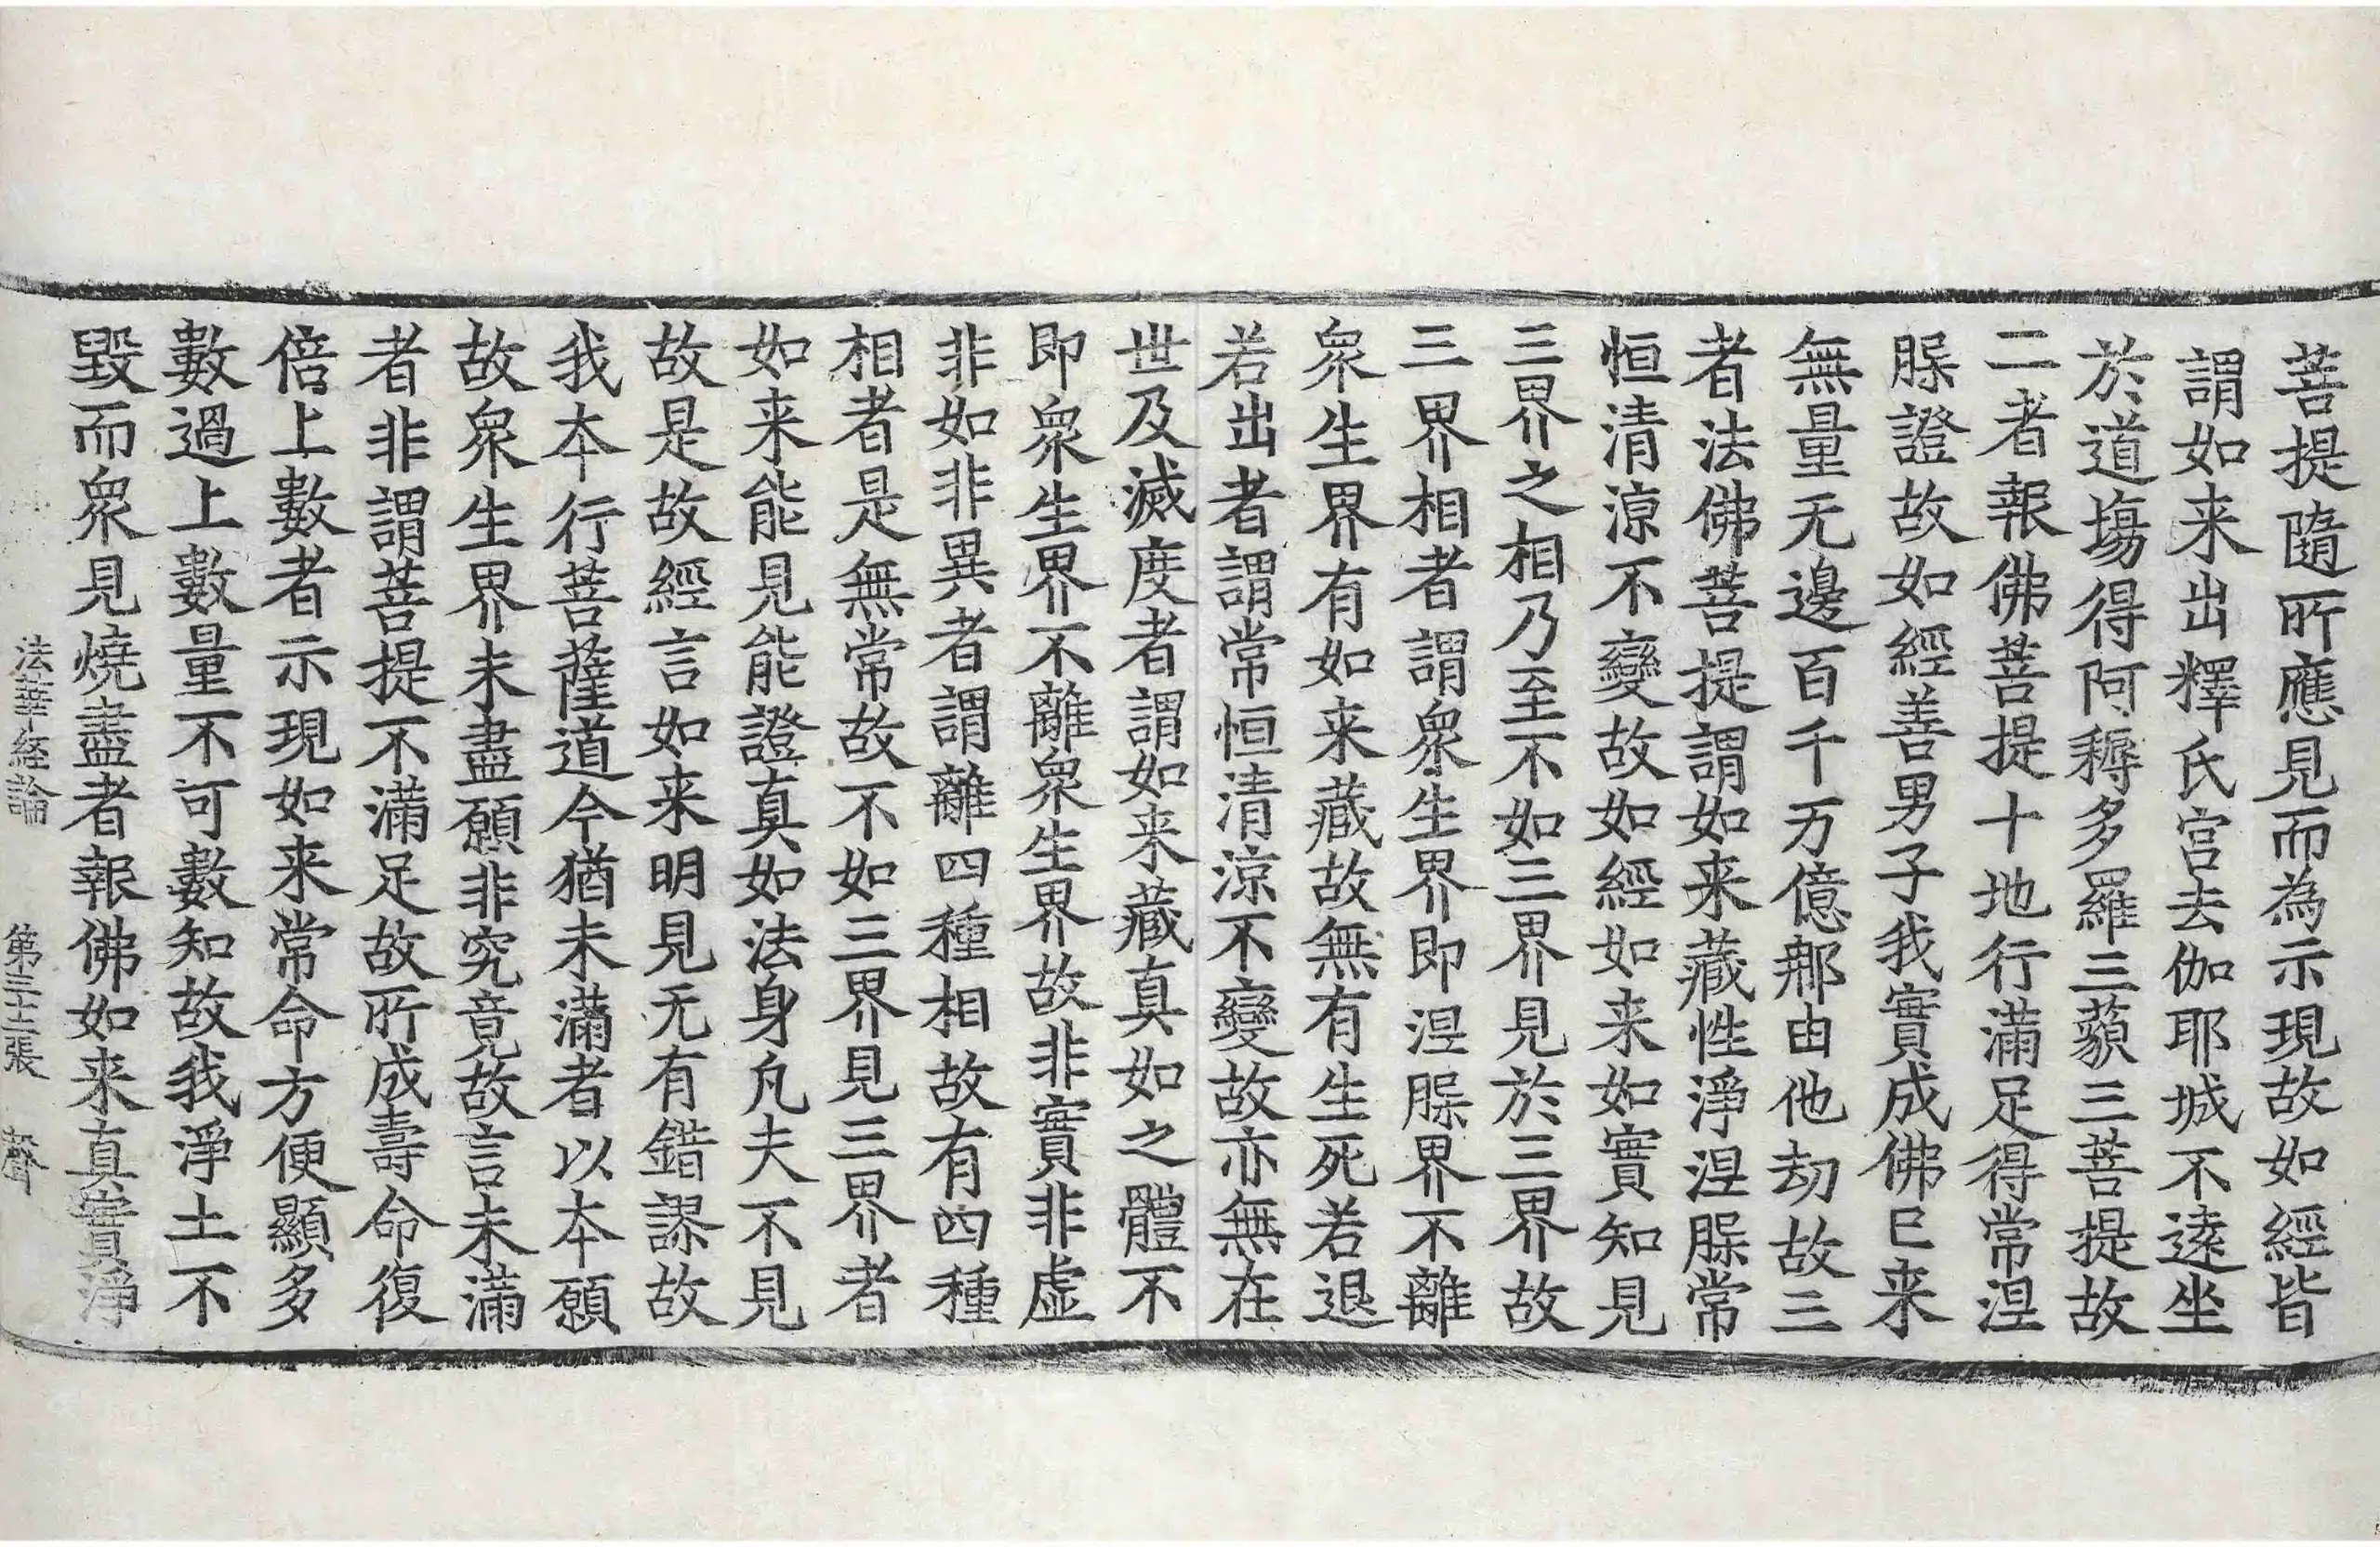 菩提隨所應見而為示現故如經皆
謂如来出釋氏宮去伽耶城不遠坐
於道場得阿耨多羅三藐三菩提故
二者報佛菩提十地行滿足得常涅
𦝫證故如經善男子我實成佛已来
無量无邊百千万億那由他劫故三
者法佛菩提謂如来藏性淨涅𦝫常
恒清涼不變故如經如来如實知見
三界之相乃至不如三界見於三界故
三界相者謂衆生界即涅𦝫界不離
衆生界有如来藏故無有生死若退
若出者謂常恒清涼不變故亦無在
世及滅度者謂如来藏真如之體不
即衆生界不離衆生界故非實非虛
非如非異者謂離四種相故有四種
相者是無常故不如三界見三界者
如来能見能證真如法身凡夫不見
故是故經言如来明見无有錯謬故
我本行菩薩道今猶未滿者以本願
故衆生界未盡願非究竟故言未滿
者非謂菩提不滿足故所成壽命復
倍上數者示現如来常命方便顯多
數過上數量不可數知故我淨土不
毀而衆見燒盡者報佛如来真實淨
法華經論 第三十二張 聲